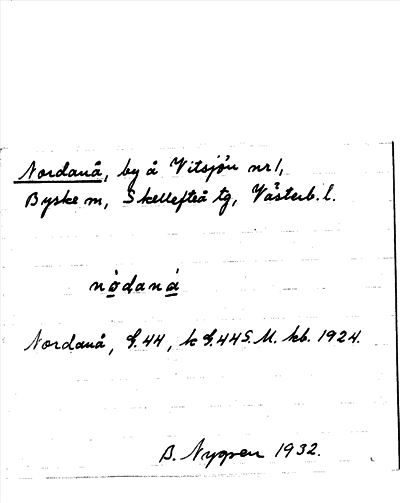 Nordanå, by å Vitsjön nr 1,
Byske m, Skellefteå tg, Västerb. l.
nòdaná
Nordanå, G.44, k G.44 S.M. kb. 1924.
B. Nygren 1932.